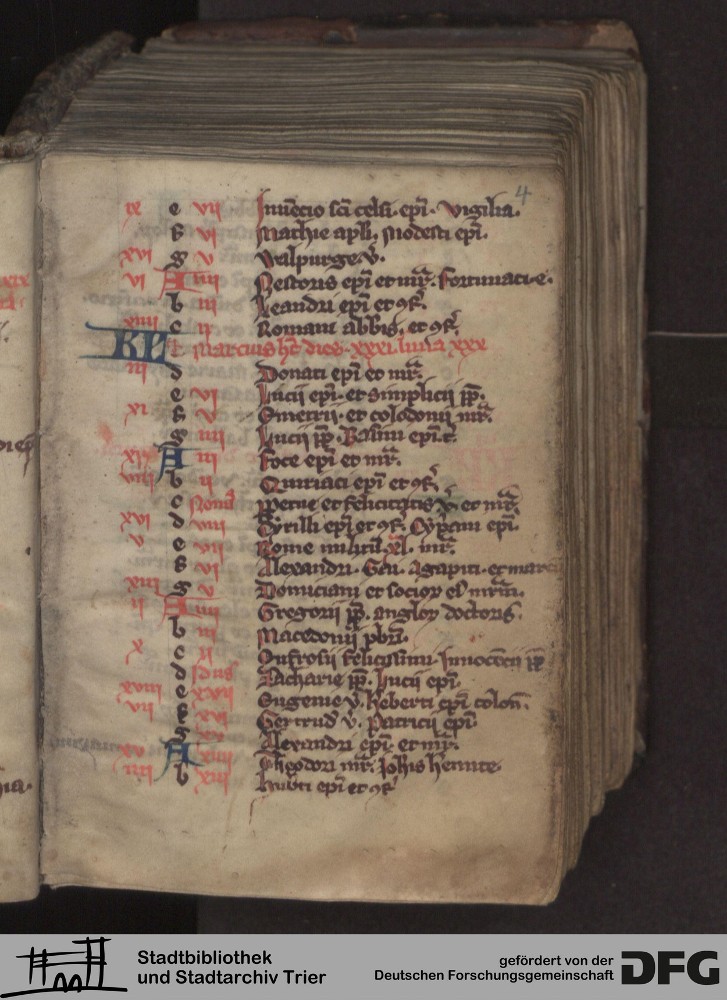 4
ix e vii Inuẽcio sci celsi. epi. vigilia.
f vi Mathie apli. Modesti epi.
xvi g v Walpurge v.
vi A iiii Nestoris epi et mr. fortunati e.
b iii Leandri epi et ɔf.
xiiii c ii Romani abbis. et ɔf.
KL Marcius hꝫ dies. xxxi luna xxx
iii d Donati epi et mr.
e vi Lucii epi. et simplicii pp.
xi f v Emetrii. et celodonii mr.
g iiii Lucii pp. Basini epi. t.
xix A iii Foce epi et mr.
viii b ii Quiriaci epi et ɔf.
c Nonas Perpetue et felicitatis v. et mr.
xvi d viii Cyrilli epi et ɔf. Cypriani epi.
v e vii Rome militum xl. mr.
f vi Alexandri. Gaii. Agapiti. et marci
xiii g v Domiciani et socior ei mrm.
ii A iiii Gregorii pp. anglor doctoris.
b iii Macedonii pbri.
x c ii Eufrosii felicissimi. Innocentii pp
d Idus Zacharie pp. Lucii epi.
xviii e xvii Eugenie v. heberti epi colon.
vii f xvi Gertrud v. Patricii epi.
g Alexandri epi et mr.
xv A xiiii Theodori mr. Iohis hemite.
iiii b xiii epi et ɔf
Stadtbibliothek
und Stadtarchiv Trier
gefördert von der
Deutschen Forschungsgemeinschaft
DFG